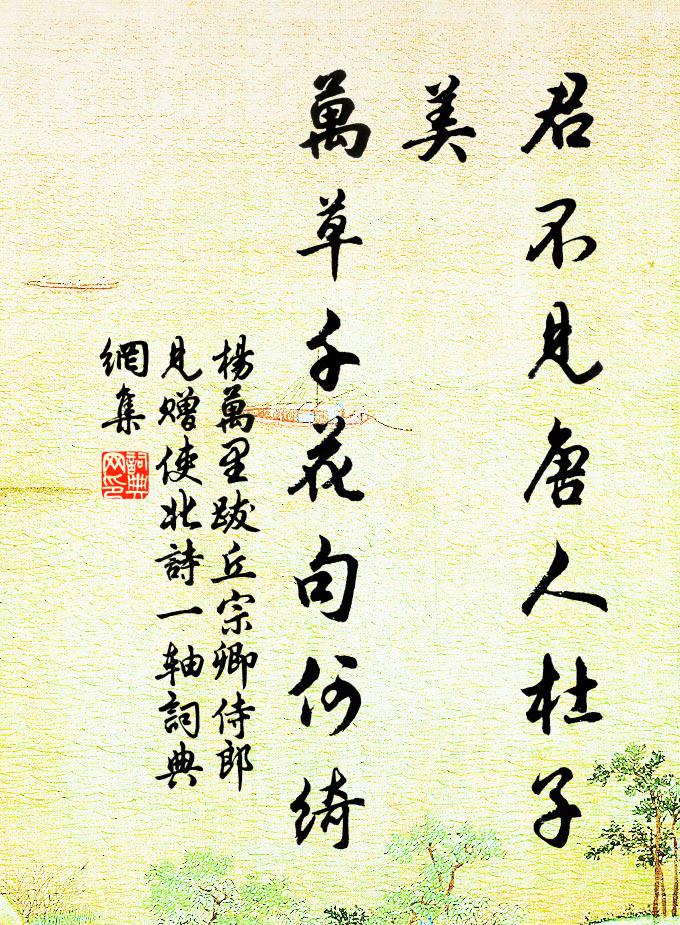 君不見唐人杜子
美
萬草千花句何綺
楊萬里跋丘宗卿侍郎
見贈使北詩一軸詞典
網集
詞典
网印